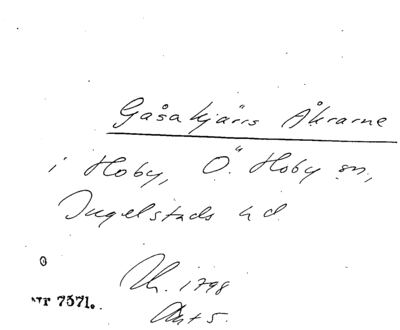 Gåsakjärrs Åkrarne
i Hoby, Ö. Hoby sn,
Ingelstads hd.
1798
Akt 5.
nr 7571.